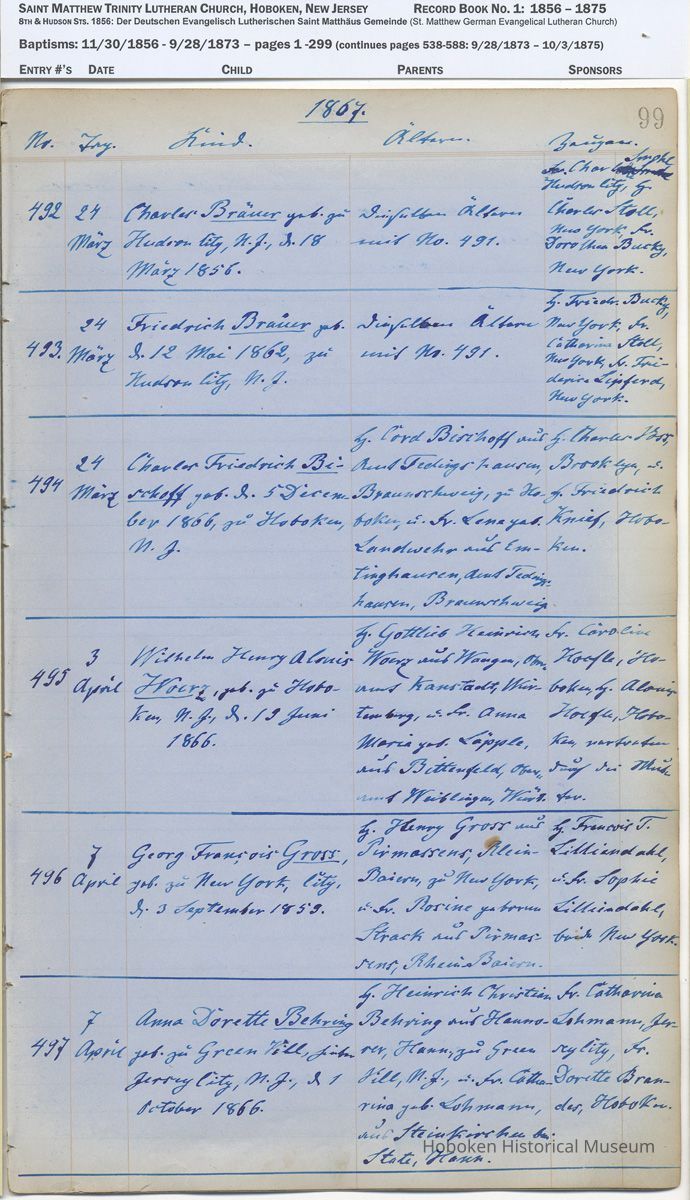 SAINT MATTHEW TRINITY LUTHERAN CHURCH, HOBOKEN, NEW JERSEY RECORD BOOK NO. 1: 1856 – 1875
8TH & HUDSON STS. 1856: Der Deutschen Evangelisch Lutherischen Saint Matthäus Gemeinde (St. Matthew German Evangelical Lutheran Church)
Baptisms: 11/30/1856 - 9/28/1873 – pages 1 -299 (continues pages 538-588: 9/28/1873 – 10/3/1875)
ENTRY #'S DATE CHILD PARENTS SPONSORS
1867.
99
No. Tag. Kind. Ältern. Zeugen.
492
24
März
Charles Bräuer geb. zu
Hudson City, N. J., d. 18
März 1856.
Dieselben Ältern
mit No. 491.
Hudson City, H.
Charles Stoll,
New York, Fr.
Dorothea Bucky,
New York.
493.
24
März
Friedrich Bräuer geb.
d. 12 Mai 1862, zu
Hudson City, N. J.
Dieselben Ältern
mit No. 491.
H. Friedr. Bucky,
New York, Fr.
Catharina Stoll,
New York, Fr. Frie-
derica Lipferd,
New York.
494
24
März
Charles Friedrich Bi-
schoff geb. d. 5 Decem-
ber 1866, zu Hoboken,
N. J.
H. Cord Bischoff aus
Amt Tedingshausen,
Braunschweig, zu Ho-
boken, u. Fr. Lena geb.
Landwehr aus Em-
tinghausen, Amt Teding-
hausen, Braunschweig
H. Charles
Brooklyn, u.
H. Friedrich
Knief, Hobo-
ken.
495
3
April
Wilhelm Henry Alouis
Woerz, geb. zu Hobo-
ken, N. J., d. 19 Juni
1866.
H. Gottlieb Heinrich
Woerz aus Wangen, Ober-
amt Kanstadt, Wür-
temberg, u. Fr. Anna
Maria geb. Läpple,
aus Bittenfeld, Ober-
amt Weiblingen, Würt.
Fr. Carolin
Hoefle, Ho-
boken, H. Alouis
Hoefle, Hobo-
ken, vertreten
durch die Mut-
ter.
496
7
April
Georg François Gross,
geb. zu New York, City,
d. 3 September 1859.
H. Henry Gross aus
Pirmassens, Rhein-
Baiern, zu New York,
u. Fr. Rosine geboren
Strack aus Pirmas-
sens, Rhein Baiern.
H. François T.
Lilliendahl,
u. Fr. Sophie
Lilliendahl,
beide New York.
497
7
April
Anna Dorette Behring
geb. zu Green Vill,
Jersey City, N. J., d. 1
October 1866.
H. Heinrich Christian
Behring aus Hanno-
ver, Hann., zu Green
Vill, N. J., u. Fr. Catha-
rina geb. Lohmann,
aus Steinkirchen bei
Stade, Hann.
Fr. Catharina
Lohmann, Jer-
sey City, Fr.
Dorette Bran-
des, Hoboken.
Hoboken Historical Museum